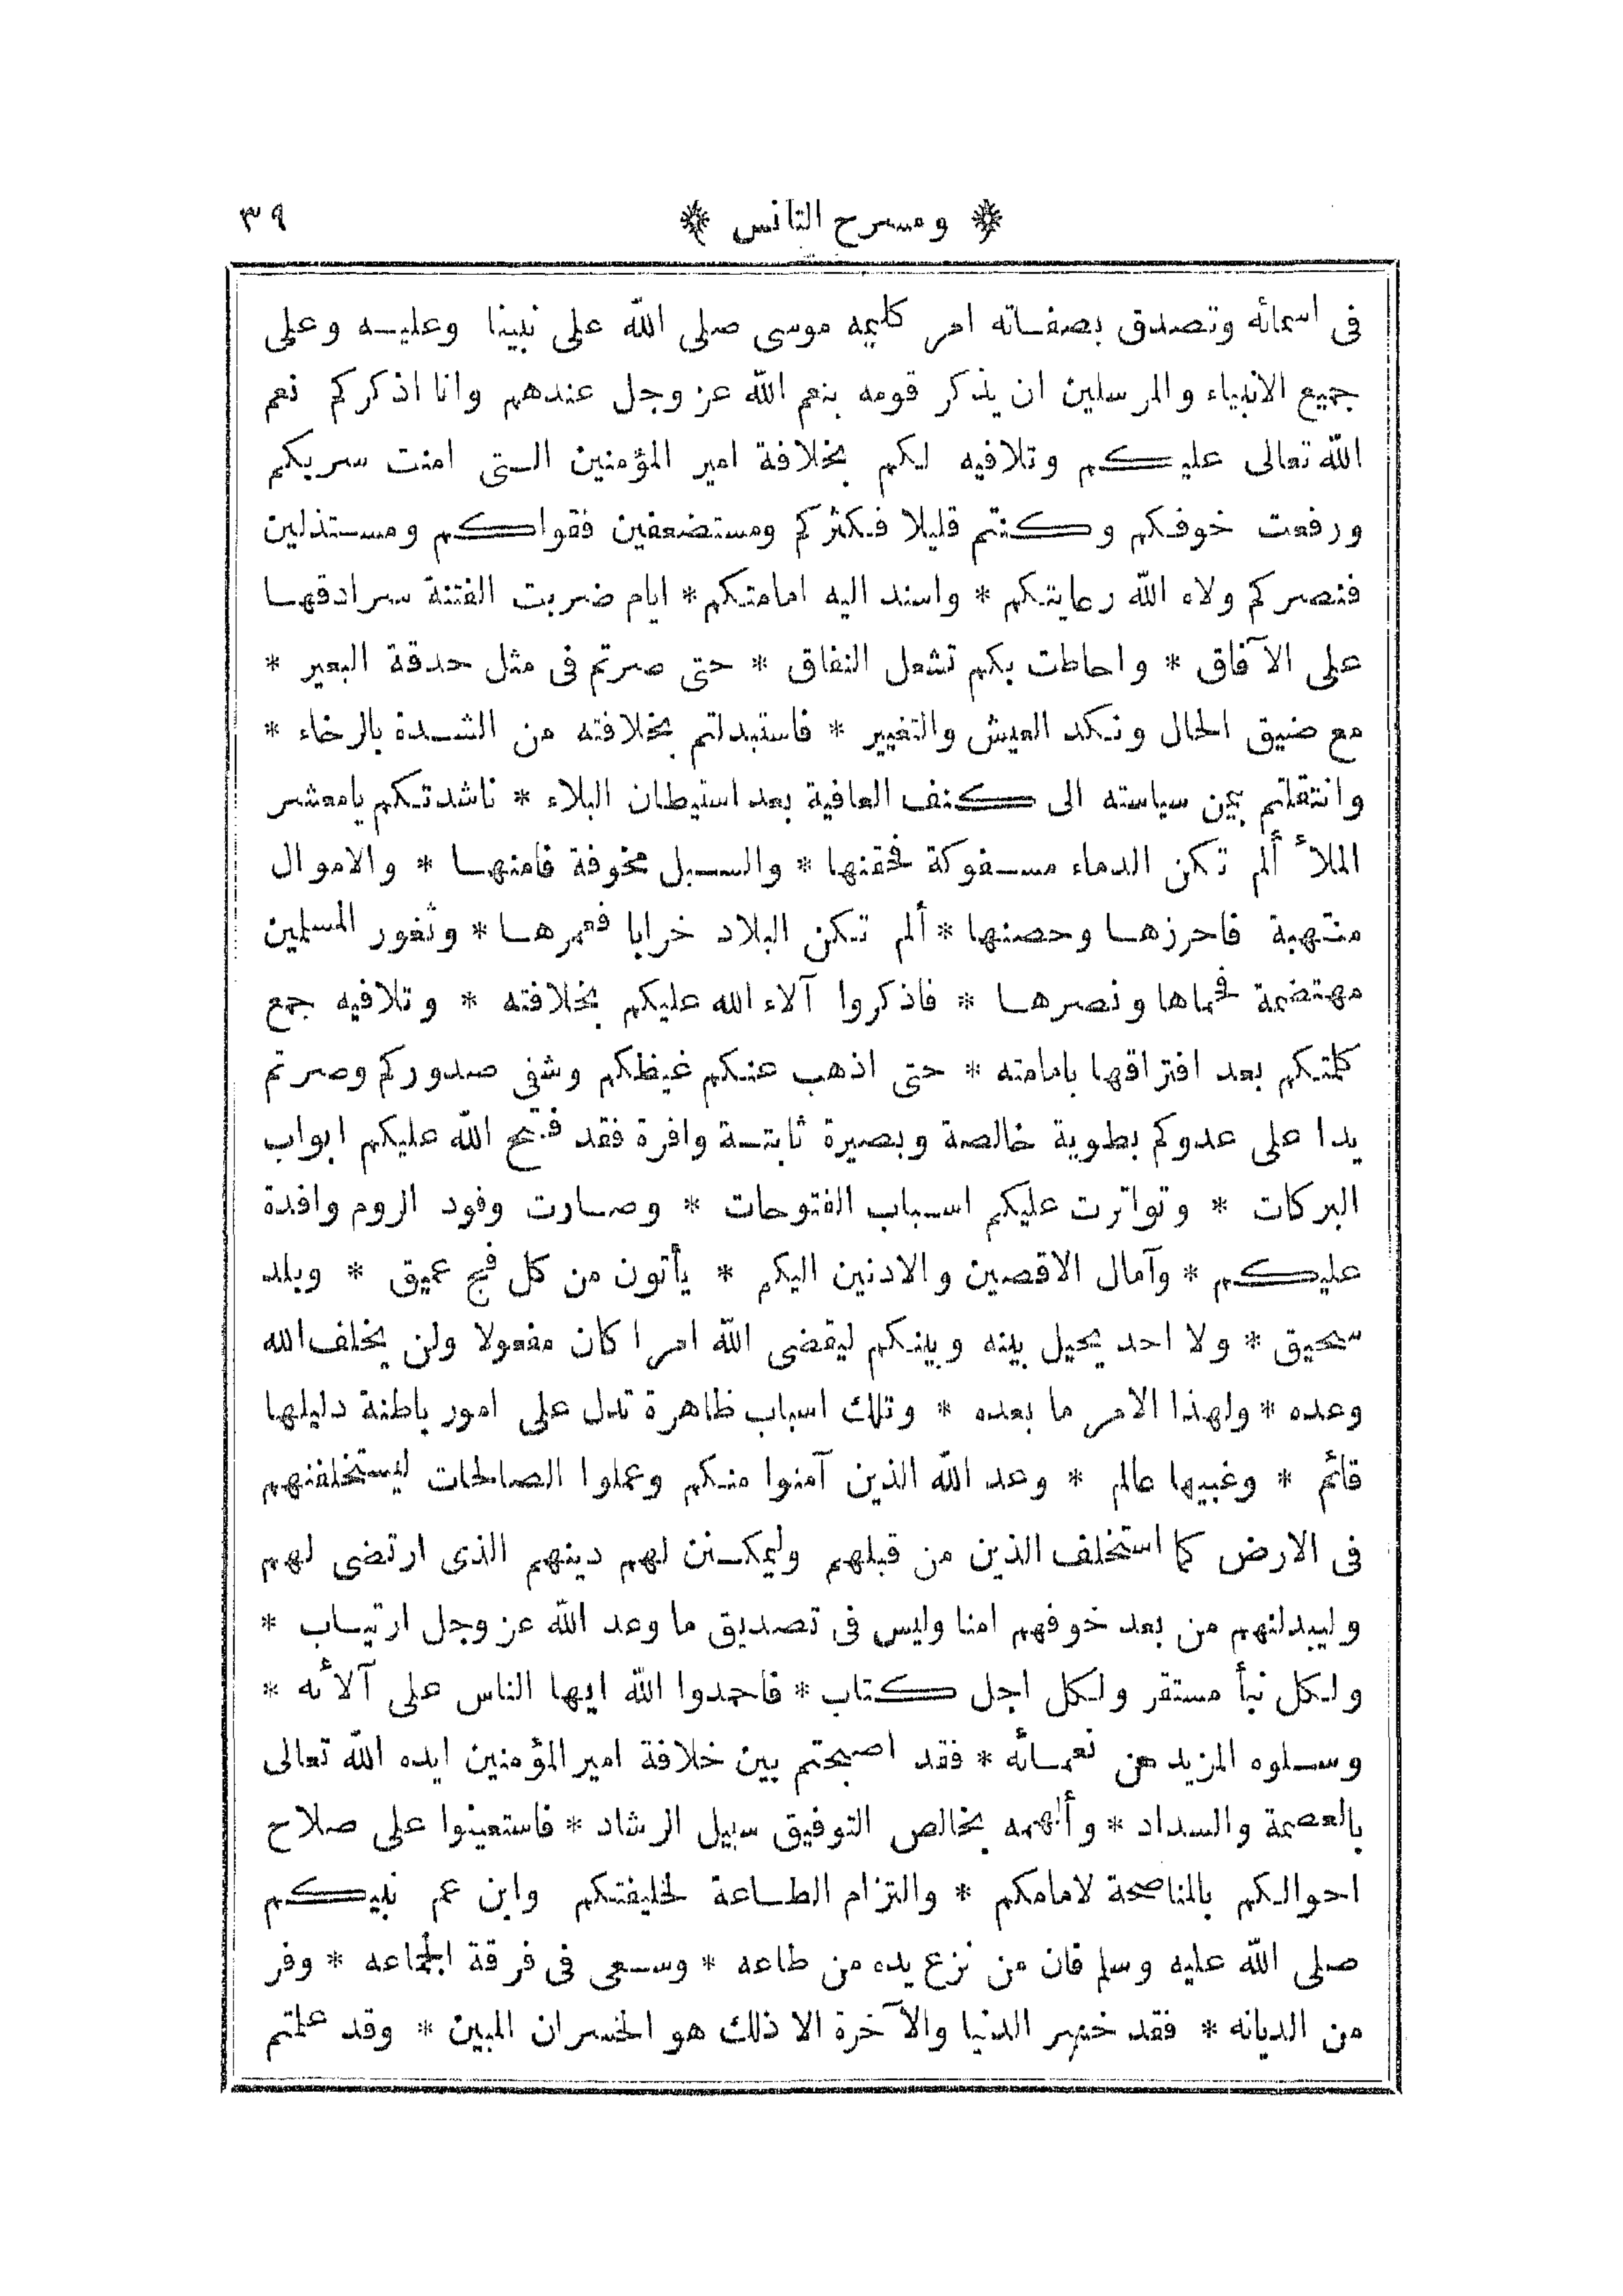 ﴿ ومسرح التانس ﴾ ٣٩
فى اسمائه وتصدق بصفاته امر كليمه موسى صلى الله على نبينا وعليه وعلى
جميع الانبياء والمرسلين ان يذكر قومه بنعم الله عز وجل عندهم وانا اذكركم نعم
الله تعالى عليكم وتلافيه لكم بخلافة امير المؤمنين التى امنت سربكم
ورفعت خوفكم وكنتم قليلا فكثركم ومستضعفين فقواكم ومستذلين
فنصركم ولاه الله رعايتكم * واسند اليه امامتكم * ايام ضربت الفتنة سرادقها
على الآفاق * واحاطت بكم تشعل النفاق * حتى صرتم فى مثل حدقة البعير *
مع ضيق الحال ونكد العيش والتغيير * فاستبدلتم بخلافته من الشدة بالرخاء *
وانتقلتم بيمن سياسته الى كنف العافية بعد استيطان البلاء * ناشدتكم يامعشر
الملأ ألم تكن الدماء مسفوكة فحقنها * والسبل مخوفة فامنها * والاموال
منتهبة فاحرزها وحصنها * ألم تكن البلاد خرابا فعمرها * وثغور المسلمين
مهتضمة فحماها ونصرها * فاذكروا آلاء الله عليكم بخلافته * وتلافيه جمع
كلمتكم بعد افتراقها بامامته * حتى اذهب عنكم غيظكم وشفى صدوركم وصرتم
يدا على عدوكم بطوية خالصة وبصيرة ثابتة وافرة فقد فتح الله عليكم ابواب
البركات * وتواترت عليكم اسباب الفتوحات * وصارت وفود الروم وافدة
عليكم * وآمال الاقصين والادنين اليكم * يأتون من كل فج عميق * وبلد
سحيق * ولا احد يحيل بينه وبينكم ليقضى الله امرا كان مفعولا ولن يخلف الله
وعده * ولهذا الامر ما بعده * وتلك اسباب ظاهرة تدل على امور باطنة دليلها
قائم * وغيبها عالم * وعد الله الذين آمنوا منكم وعملوا الصالحات ليستخلفنهم
فى الارض كما استخلف الذين من قبلهم وليمكنن لهم دينهم الذى ارتضى لهم
وليبدلنهم من بعد خوفهم امنا وليس فى تصديق ما وعد الله عز وجل ارتياب *
ولكل نبأ مستقر ولكل اجل كتاب * فاحمدوا الله ايها الناس على آلائه *
وسلوه المزيد من نعمائه * فقد اصبحتم بين خلافة امير المؤمنين ايده الله تعالى
بالعصمة والسداد * وألهمه بخالص التوفيق سبيل الرشاد * فاستعينوا على صلاح
احوالكم بالمناصحة لامامكم * والتزام الطاعة لخليفتكم وابن عم نبيكم
صلى الله عليه وسلم فان من نزع يده من طاعه * وسعى فى فرقة الجماعه * وفر
من الديانه * فقد خسر الدنيا والآخرة الا ذلك هو الخسران المبين * وقد علمتم